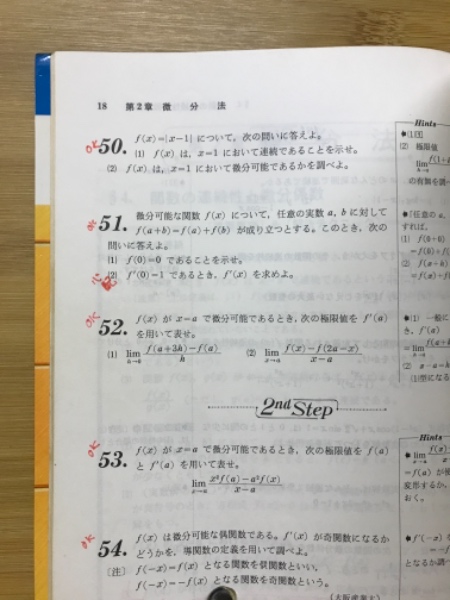 18 第2章 微 分 法
OK 50. f(x)=|x-1| について，次の問いに答えよ。
(1) f(x) は，x=1 において連続であることを示せ。
(2) f(x) は，x=1 において微分可能であるかを調べよ。
51. 微分可能な関数 f(x) について，任意の実数 a, b に対して
f(a+b)=f(a)+f(b) が成り立つとする。このとき，次の
問いに答えよ。
(1) f(0)=0 であることを示せ。
(2) f'(0)=1 であるとき，f'(x) を求めよ。
OK 52. f(x) が x=a で微分可能であるとき，次の極限値を f'(a)
を用いて表せ。
(1) lim h→0 f(a+3h)-f(a) / h (2) lim x→a f(x)-f(2a-x) / x-a
2nd Step
OK 53. f(x) が x=a で微分可能であるとき，次の極限値を f(a)
と f'(a) を用いて表せ。
lim x→a f(a)-a f(x) / x-a
OK 54. f(x) は微分可能な偶関数である。f'(x) が奇関数になるか
どうかを，導関数の定義を用いて調べよ。
〔注〕 f(-x)=f(x) となる関数を偶関数といい，
f(-x)=-f(x) となる関数を奇関数という。
Hints
(1)
(2) 極限値
lim h→0 f(1+
の有無を調
任意の a,
すれば，
(1) f(0+0)
=f(0)+f(
(2)
=f(x)+f(
(1) 一般に
き，f'(a)
=lim h→0 f(a+
(2)
(1)型になる
Hints
lim x→a f(x)
=f(a) が
変形するか，
おく。
f'(-x)
=-f
となるか調